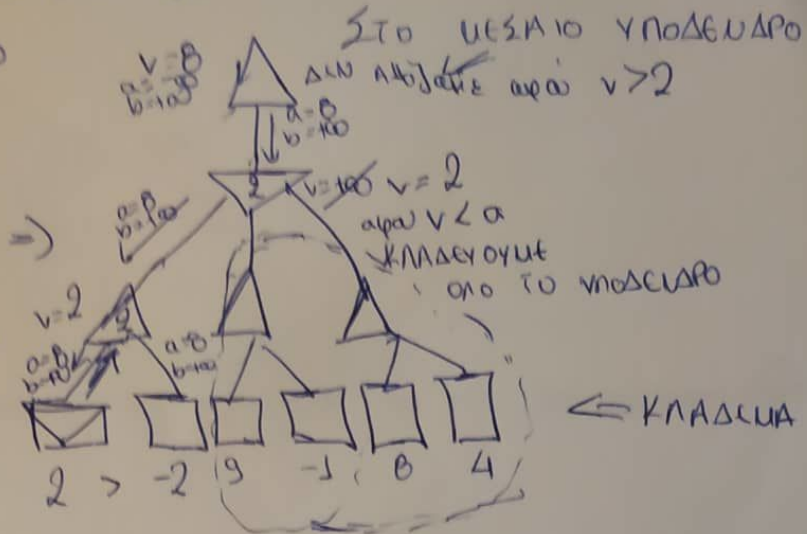 ΣΤΟ ΜΕΣΑΙΟ ΥΠΟΔΕΝΔΡΟ
ΔΕΝ ΑΛΛΑΞΑΜΕ αρα v>2
v=8
a=8
b=100
a=8
b=100
2
v=100 v=2
αρα v<a
ΚΛΑΔΕΥΟΥΜΕ
ΟΛΟ ΤΟ ΥΠΟΔΕΝΔΡΟ
a=8
b=100
=>
v=2
2
a=8
b=100
a=8
b=100
<= ΚΛΑΔΕΜΑ
2 > -2 9 -1 8 4